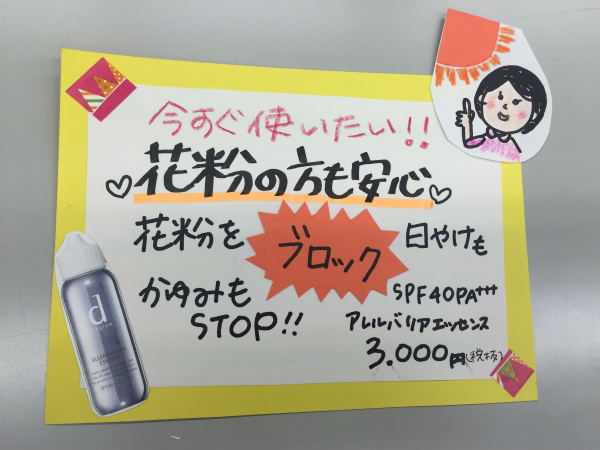 今すぐ使いたい!!
♡花粉の方も安心♡
花粉を
ブロック
日やけも
かゆみも
STOP!!
SPF40PA+++
アレルバリアエッセンス
3.000円(税抜)
d